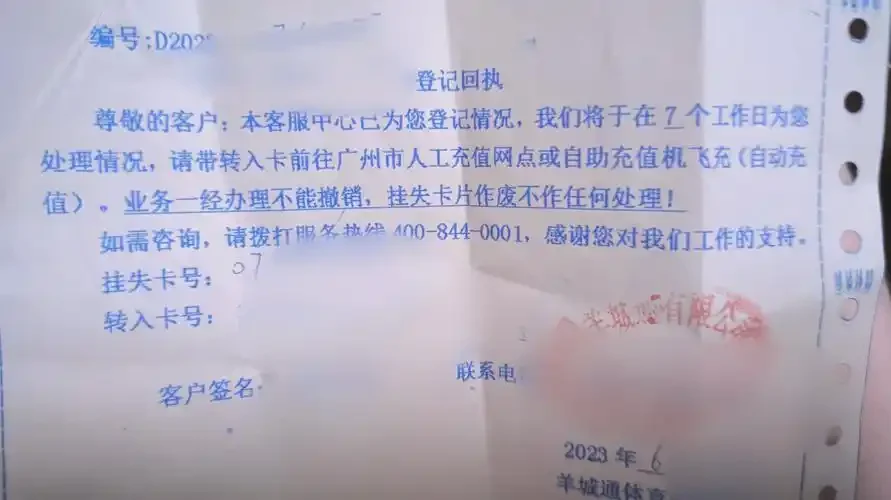 编号:D202
登记回执
尊敬的客户：本客服中心已为您登记情况，我们将于在 7 个工作日为您
处理情况，请带转入卡前往广州市人工充值网点或自助充值机飞充(自动充
值）。业务一经办理不能撤销，挂失卡片作废不作任何处理！
如需咨询，请拨打服务热线 400-844-0001，感谢您对我们工作的支持。
挂失卡号：07
转入卡号：
有限公
客户签名
联系电
2023 年 6
羊城通体育